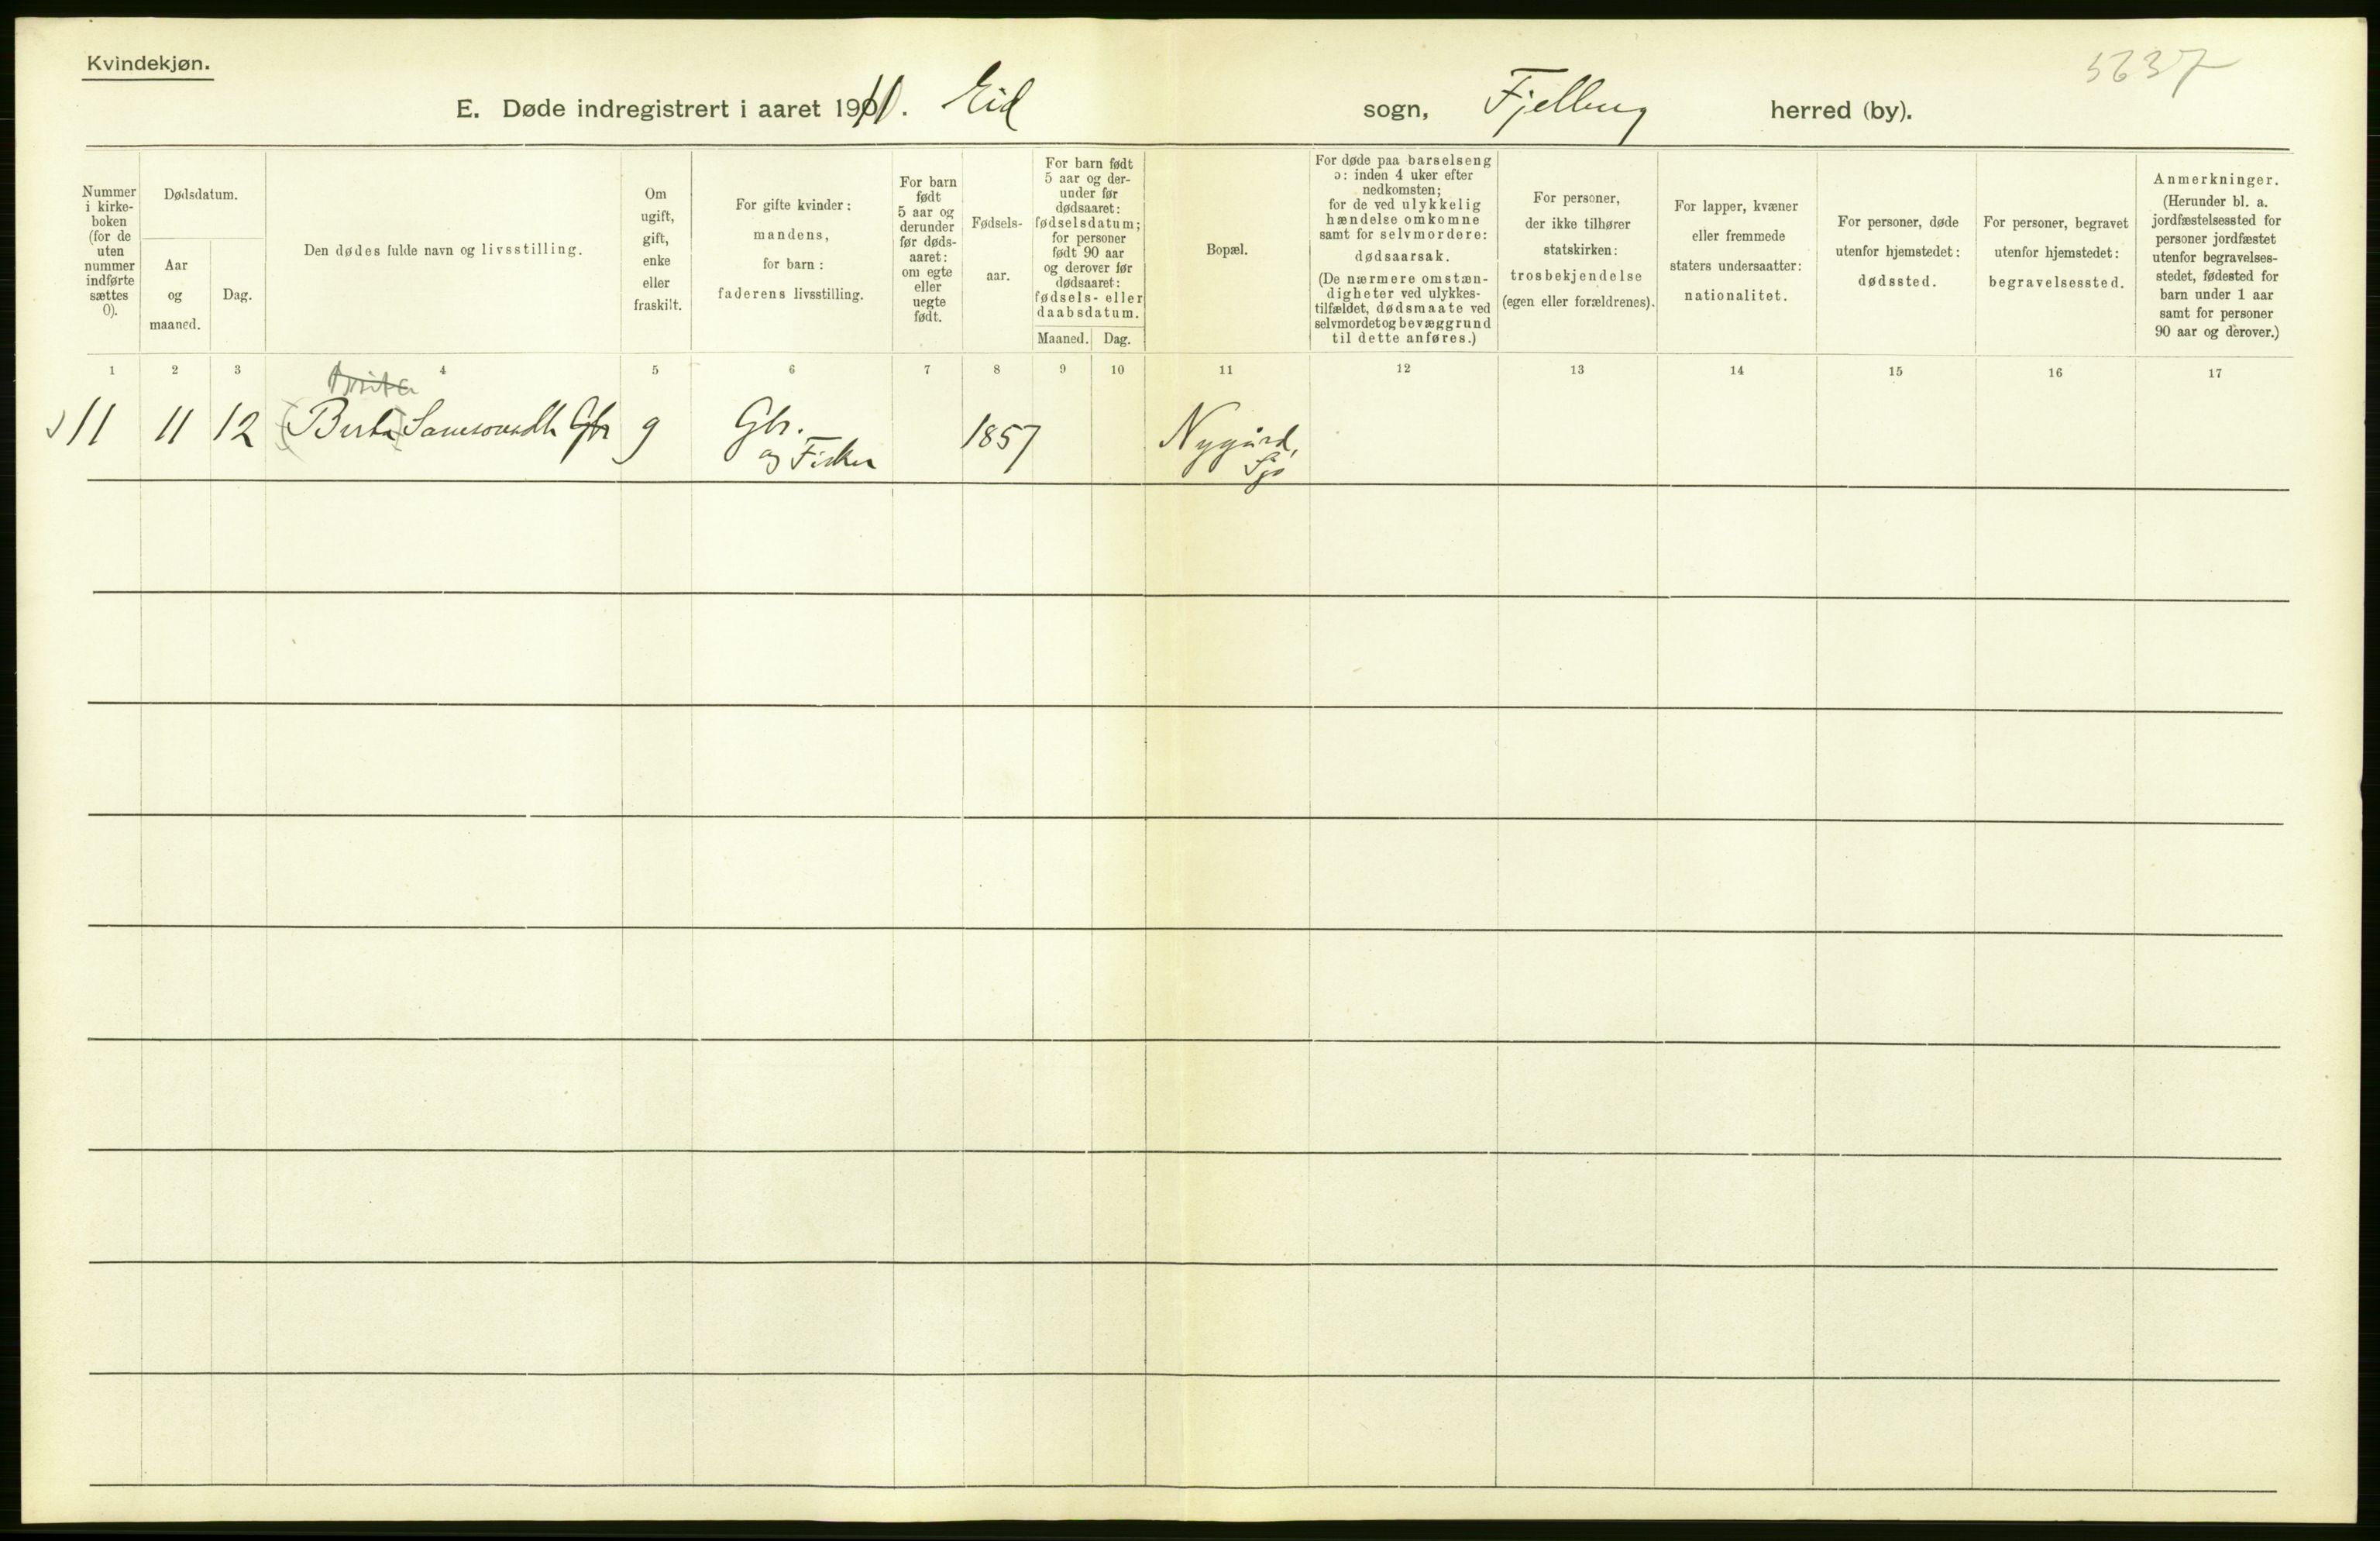 Kvindekjøn.
5637
E. Døde indregistrert i aaret 1911. Eid sogn, Fjelberg herred (by).
Nummer i kirke- boken (for de uten nummer indførte sættes 0).
Dødsdatum.
Aar og maaned.
Dag.
Den dødes fulde navn og livsstilling.
Om ugift, gift, enke eller fraskilt.
For gifte kvinder: mandens, for barn: faderens livsstilling.
For barn født 5 aar og derunder før døds- aaret: om egte eller uegte født.
Fødsels- aar.
For barn født 5 aar og der- under før dødsaaret: fødselsdatum; for personer født 90 aar og derover før dødsaaret: fødsels- eller daabsdatum.
Maaned.
Dag.
Bopæl.
For døde paa barselseng ɔ: inden 4 uker efter nedkomsten; for de ved ulykkelig hændelse omkomne samt for selvmordere: dødsaarsak. (De nærmere omstæn- digheter ved ulykkes- tilfældet, dødsmaate ved selvmordet og bevæggrund til dette anføres.)
For personer, der ikke tilhører statskirken: trosbekjendelse (egen eller forældrenes).
For lapper, kvæner eller fremmede staters undersaatter: nationalitet.
For personer, døde utenfor hjemstedet: dødssted.
For personer, begravet utenfor hjemstedet: begravelsessted.
Anmerkninger. (Herunder bl. a. jordfæstelsessted for personer jordfæstet utenfor begravelses- stedet, fødested for barn under 1 aar samt for personer 90 aar og derover.)
1 2 3 4 5 6 7 8 9 10 11 12 13 14 15 16 17
Brita
11 11 12 (Berta) Samsonsdtr Gbr g Gbr. 1857 Nygård,
og Fisker